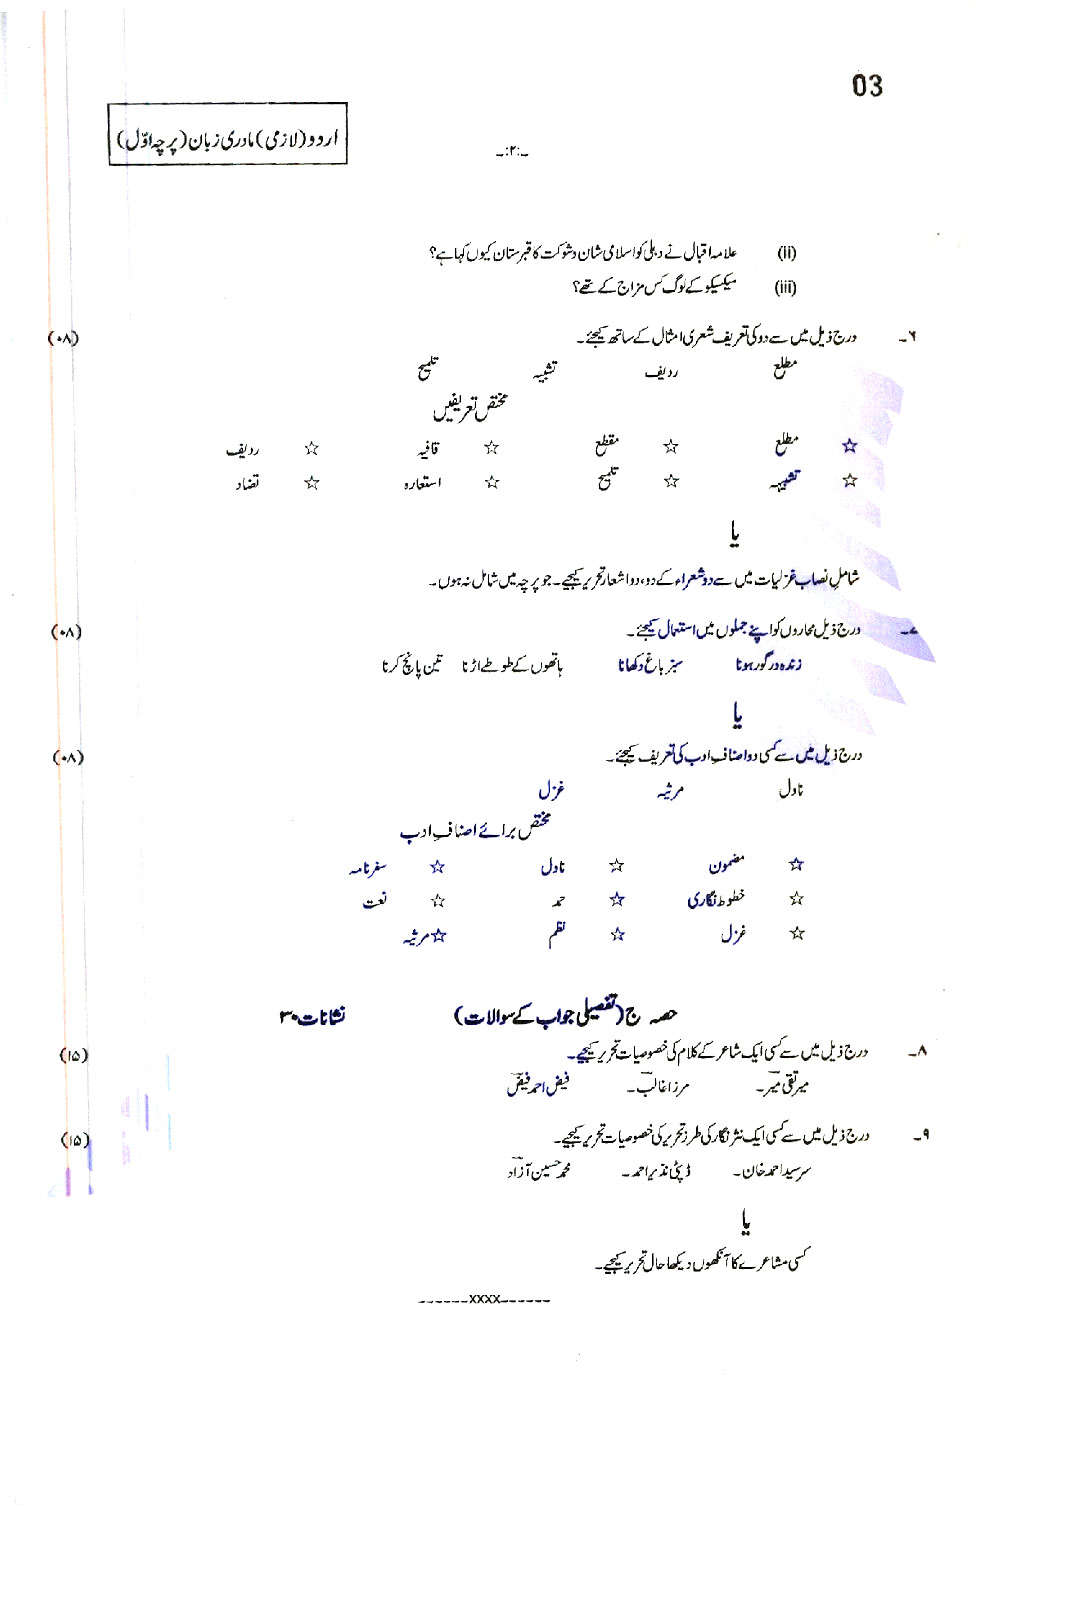 03
اردو (لازمی) مادری زبان (پرچہ اوّل)
-:۲:-
(ii) علامہ اقبال نے دہلی کو اسلامی شان و شوکت کا قبرستان کیوں کہا ہے؟
(iii) میکسیکو کے لوگ کس مزاج کے تھے؟
۶۔ درج ذیل میں سے دو کی تعریف شعری امثال کے ساتھ کیجئے۔ (۰۸)
مطلع ردیف تشبیہ تلمیح
مختص تعریفیں
☆ مطلع ☆ مقطع ☆ قافیہ ☆ ردیف
☆ تشبیہہ ☆ تلمیح ☆ استعارہ ☆ تضاد
یا
شاملِ نصاب غزلیات میں سے دو شعراء کے دو، دو اشعار تحریر کیجیے۔ جو پرچہ میں شامل نہ ہوں۔
۷۔ درج ذیل محاروں کو اپنے جملوں میں استعمال کیجئے۔ (۰۸)
زندہ درگور ہونا سبز باغ دکھانا ہاتھوں کے طوطے اڑنا تین پانچ کرنا
یا
درج ذیل میں سے کسی دو اصنافِ ادب کی تعریف کیجئے۔ (۰۸)
ناول مرثیہ غزل
مختص برائے اصنافِ ادب
☆ مضمون ☆ ناول ☆ سفرنامہ
☆ خطوط نگاری ☆ حمد ☆ نعت
☆ غزل ☆ نظم ☆ مرثیہ
حصہ ج (تفصیلی جواب کے سوالات) نشانات ۳۰
۸۔ درج ذیل میں سے کسی ایک شاعر کے کلام کی خصوصیات تحریر کیجیے۔ (۱۵)
میر تقی میرؔ۔ مرزا غالبؔ۔ فیض احمد فیضؔ
۹۔ درج ذیل میں سے کسی ایک نثر نگار کی طرز تحریر کی خصوصیات تحریر کیجیے۔ (۱۵)
سرسید احمد خان۔ ڈپٹی نذیر احمد۔ محمد حسین آزادؔ
یا
کسی مشاعرے کا آنکھوں دیکھا حال تحریر کیجیے۔
------xxxx------